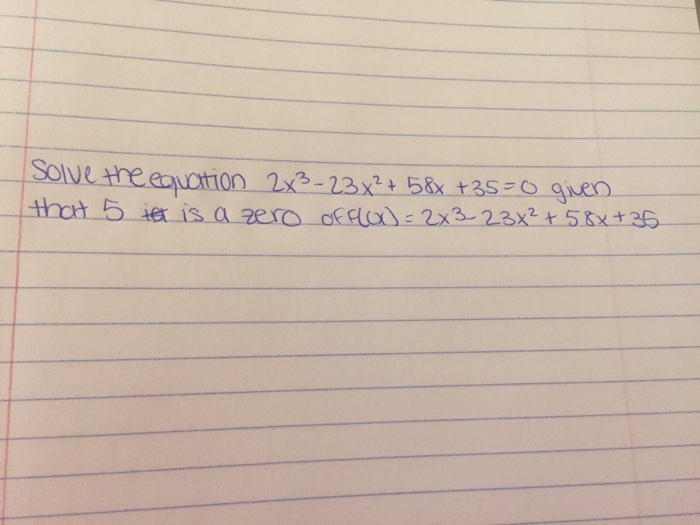 Solve the equation 2x³-23x²+ 58x +35=0 given
that 5 is a zero of f(x)=2x3-23x²+58x+35